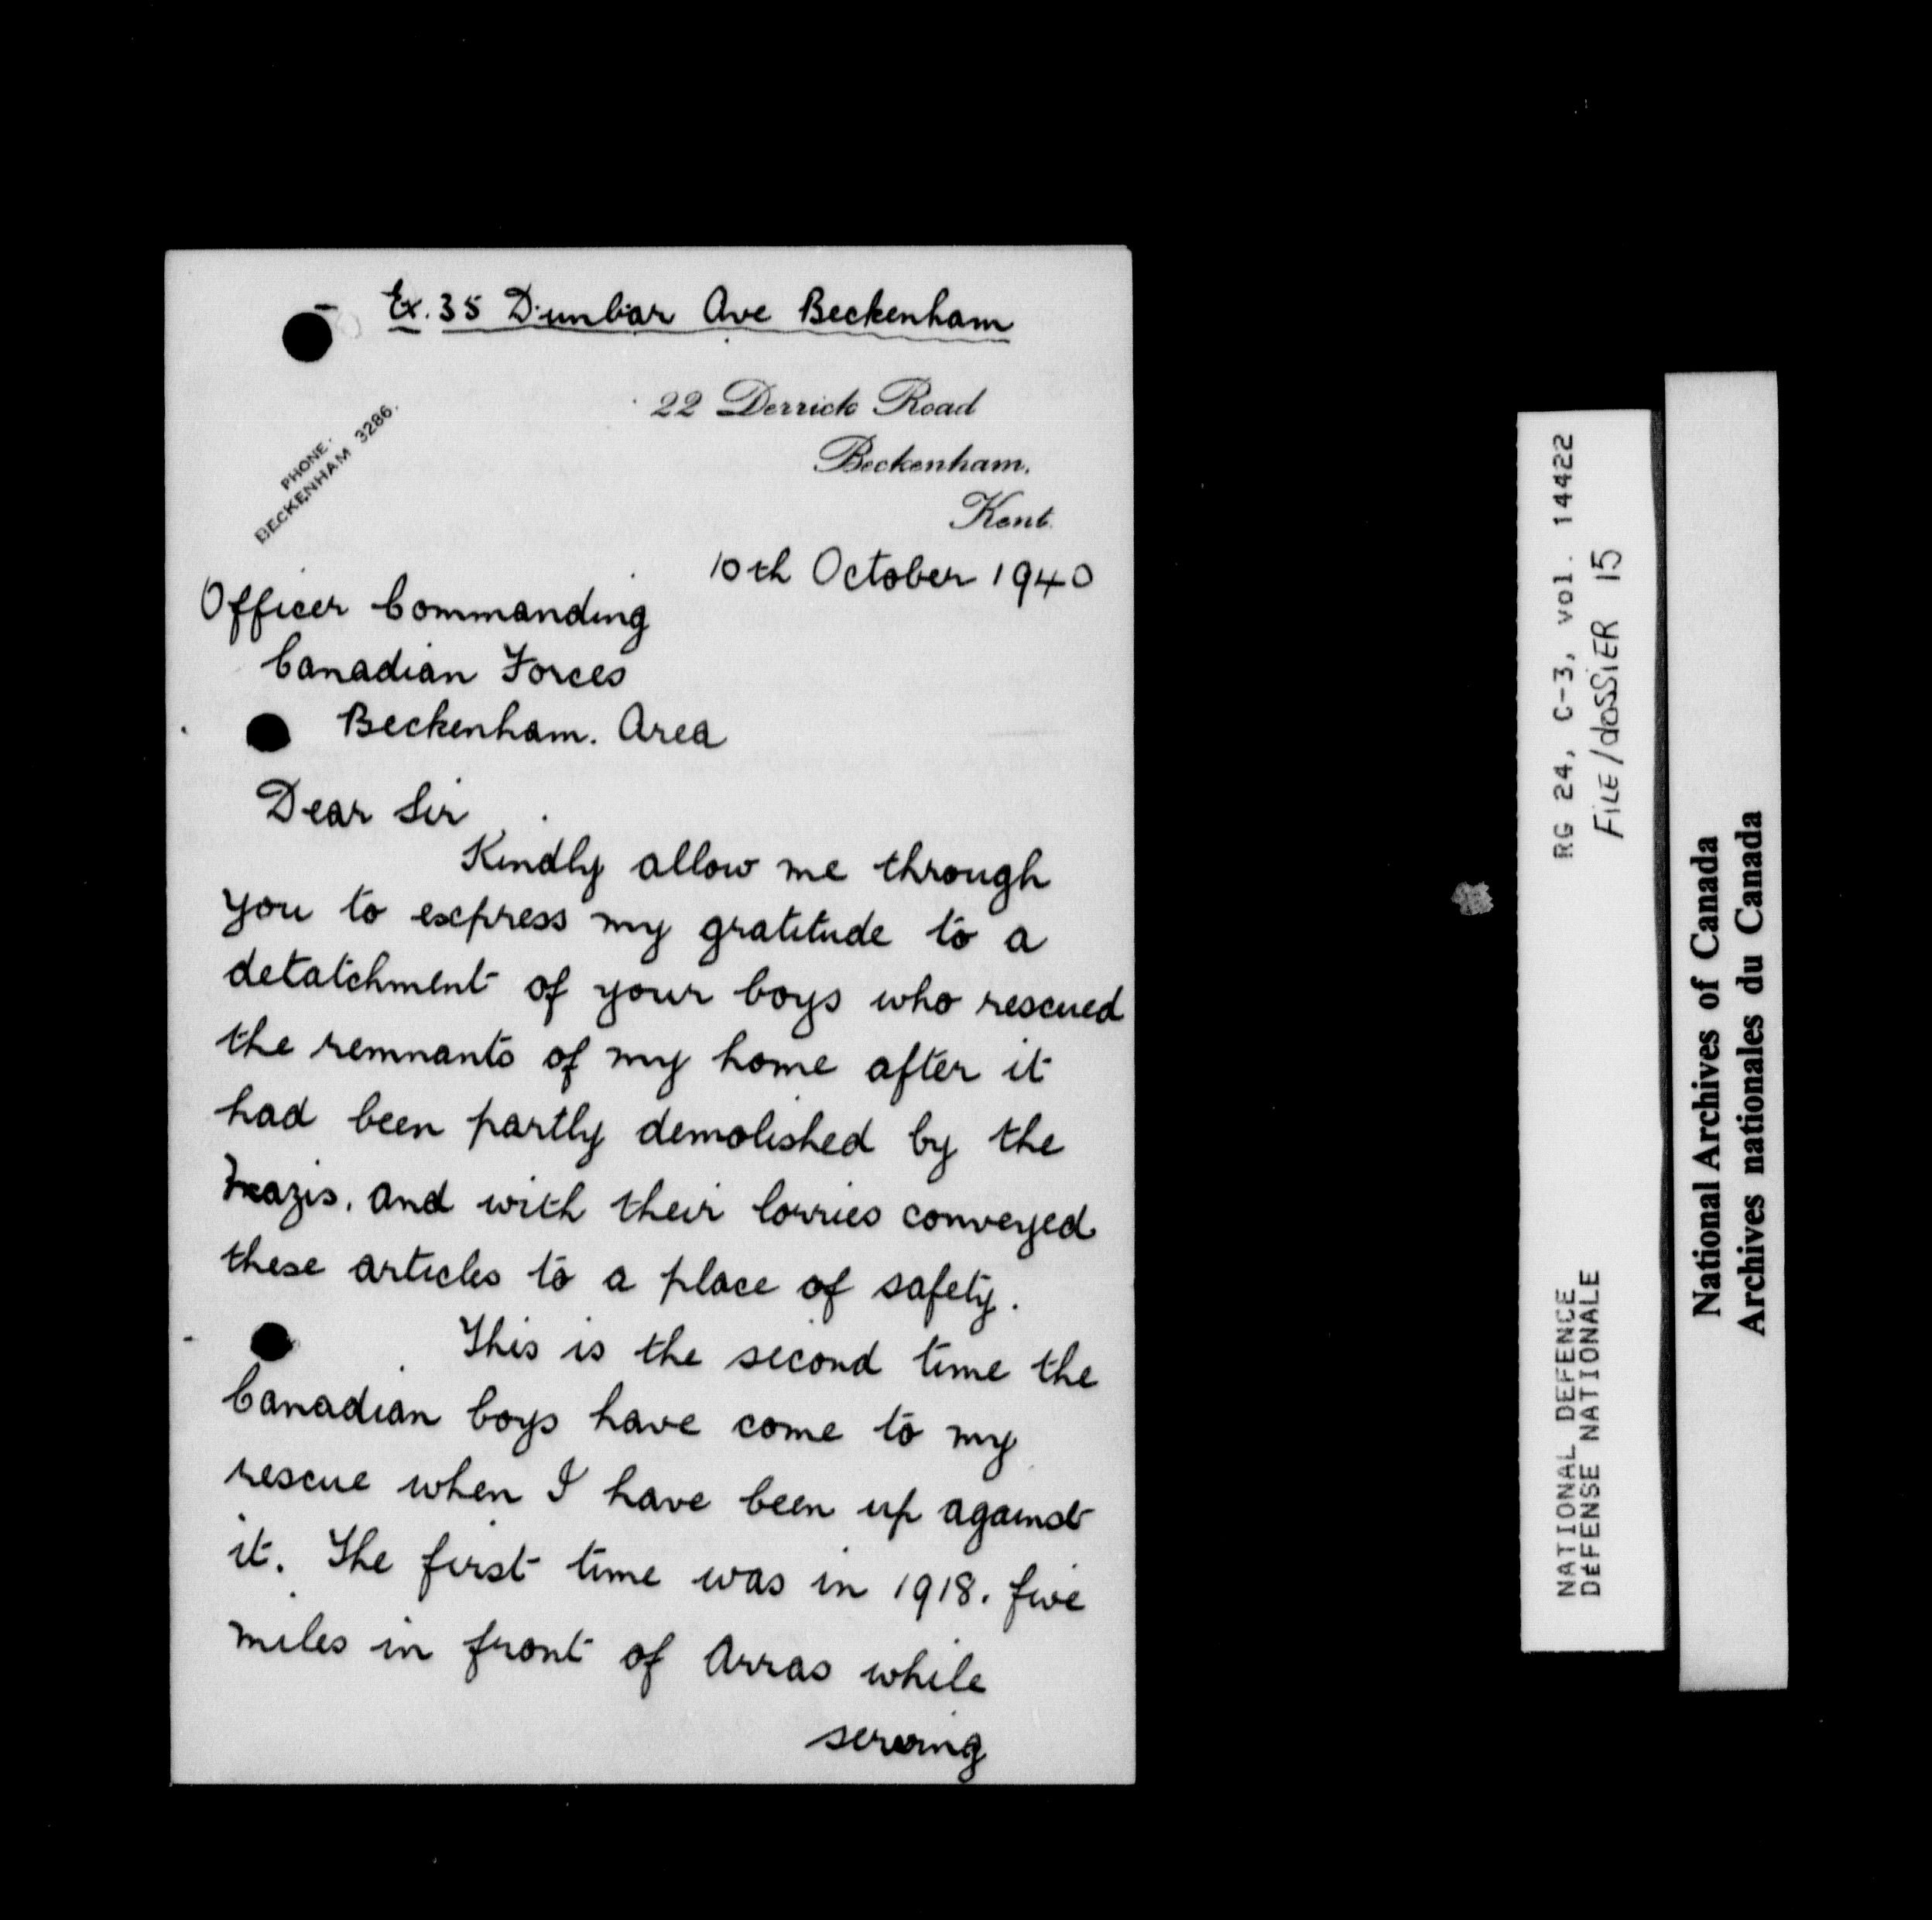 Ex. 35 Dunbar Ave Beckenham
PHONE.
BECKENHAM 3286.
22 Derrick Road
Beckenham,
Kent.
10th October 1940
Officer Commanding
Canadian Forces
Beckenham. Area
Dear Sir
Kindly allow me through
you to express my gratitude to a
detatchment of your boys who rescued
the remnants of my home after it
had been partly demolished by the
Nazis, and with their lorries conveyed
these articles to a place of safety.
This is the second time the
Canadian boys have come to my
rescue when I have been up against
it. The first time was in 1918. five
miles in front of Arras while
serving
RG 24, C-3, vol. 14422
FILE/dOSSiER 15
NATIONAL DEFENCE
DÉFENSE NATIONALE
National Archives of Canada
Archives nationales du Canada